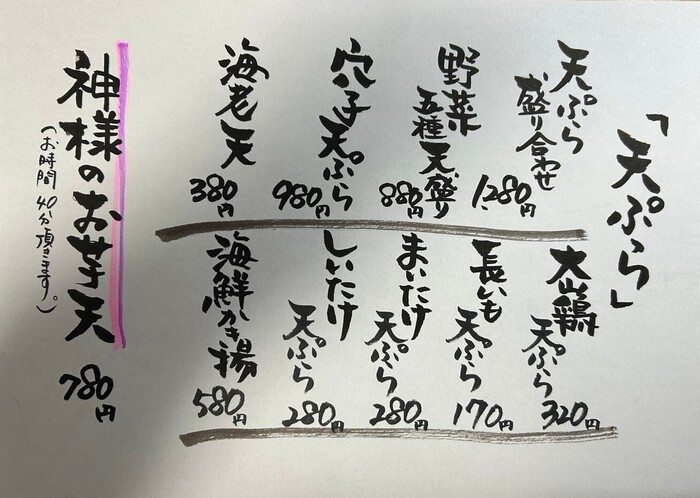 「天ぷら」
天ぷら
盛り合わせ
1280円
野菜
五種天盛り
880円
穴子天ぷら
980円
海老天
380円
大山鶏
天ぷら
320円
長いも
天ぷら
170円
まいたけ
天ぷら
280円
しいたけ
天ぷら
280円
海鮮かき揚
580円
神様のお芋天
(お時間40分頂きます。)
780円